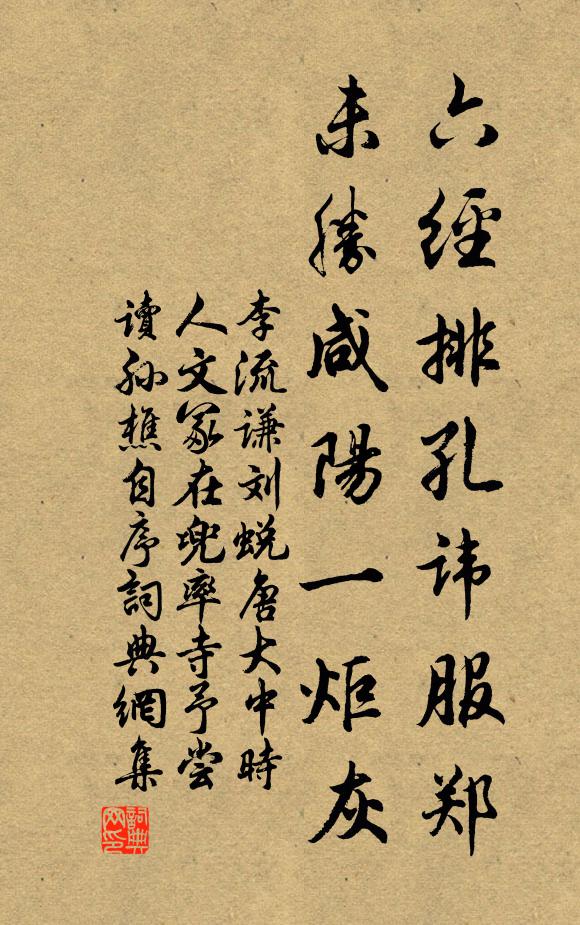 六經排孔諱服郑
未勝咸陽一炬灰
李流谦刘蜕唐大中時
人文冢在兜率寺予尝
讀孙樵自序詞典網集
詞典
网印